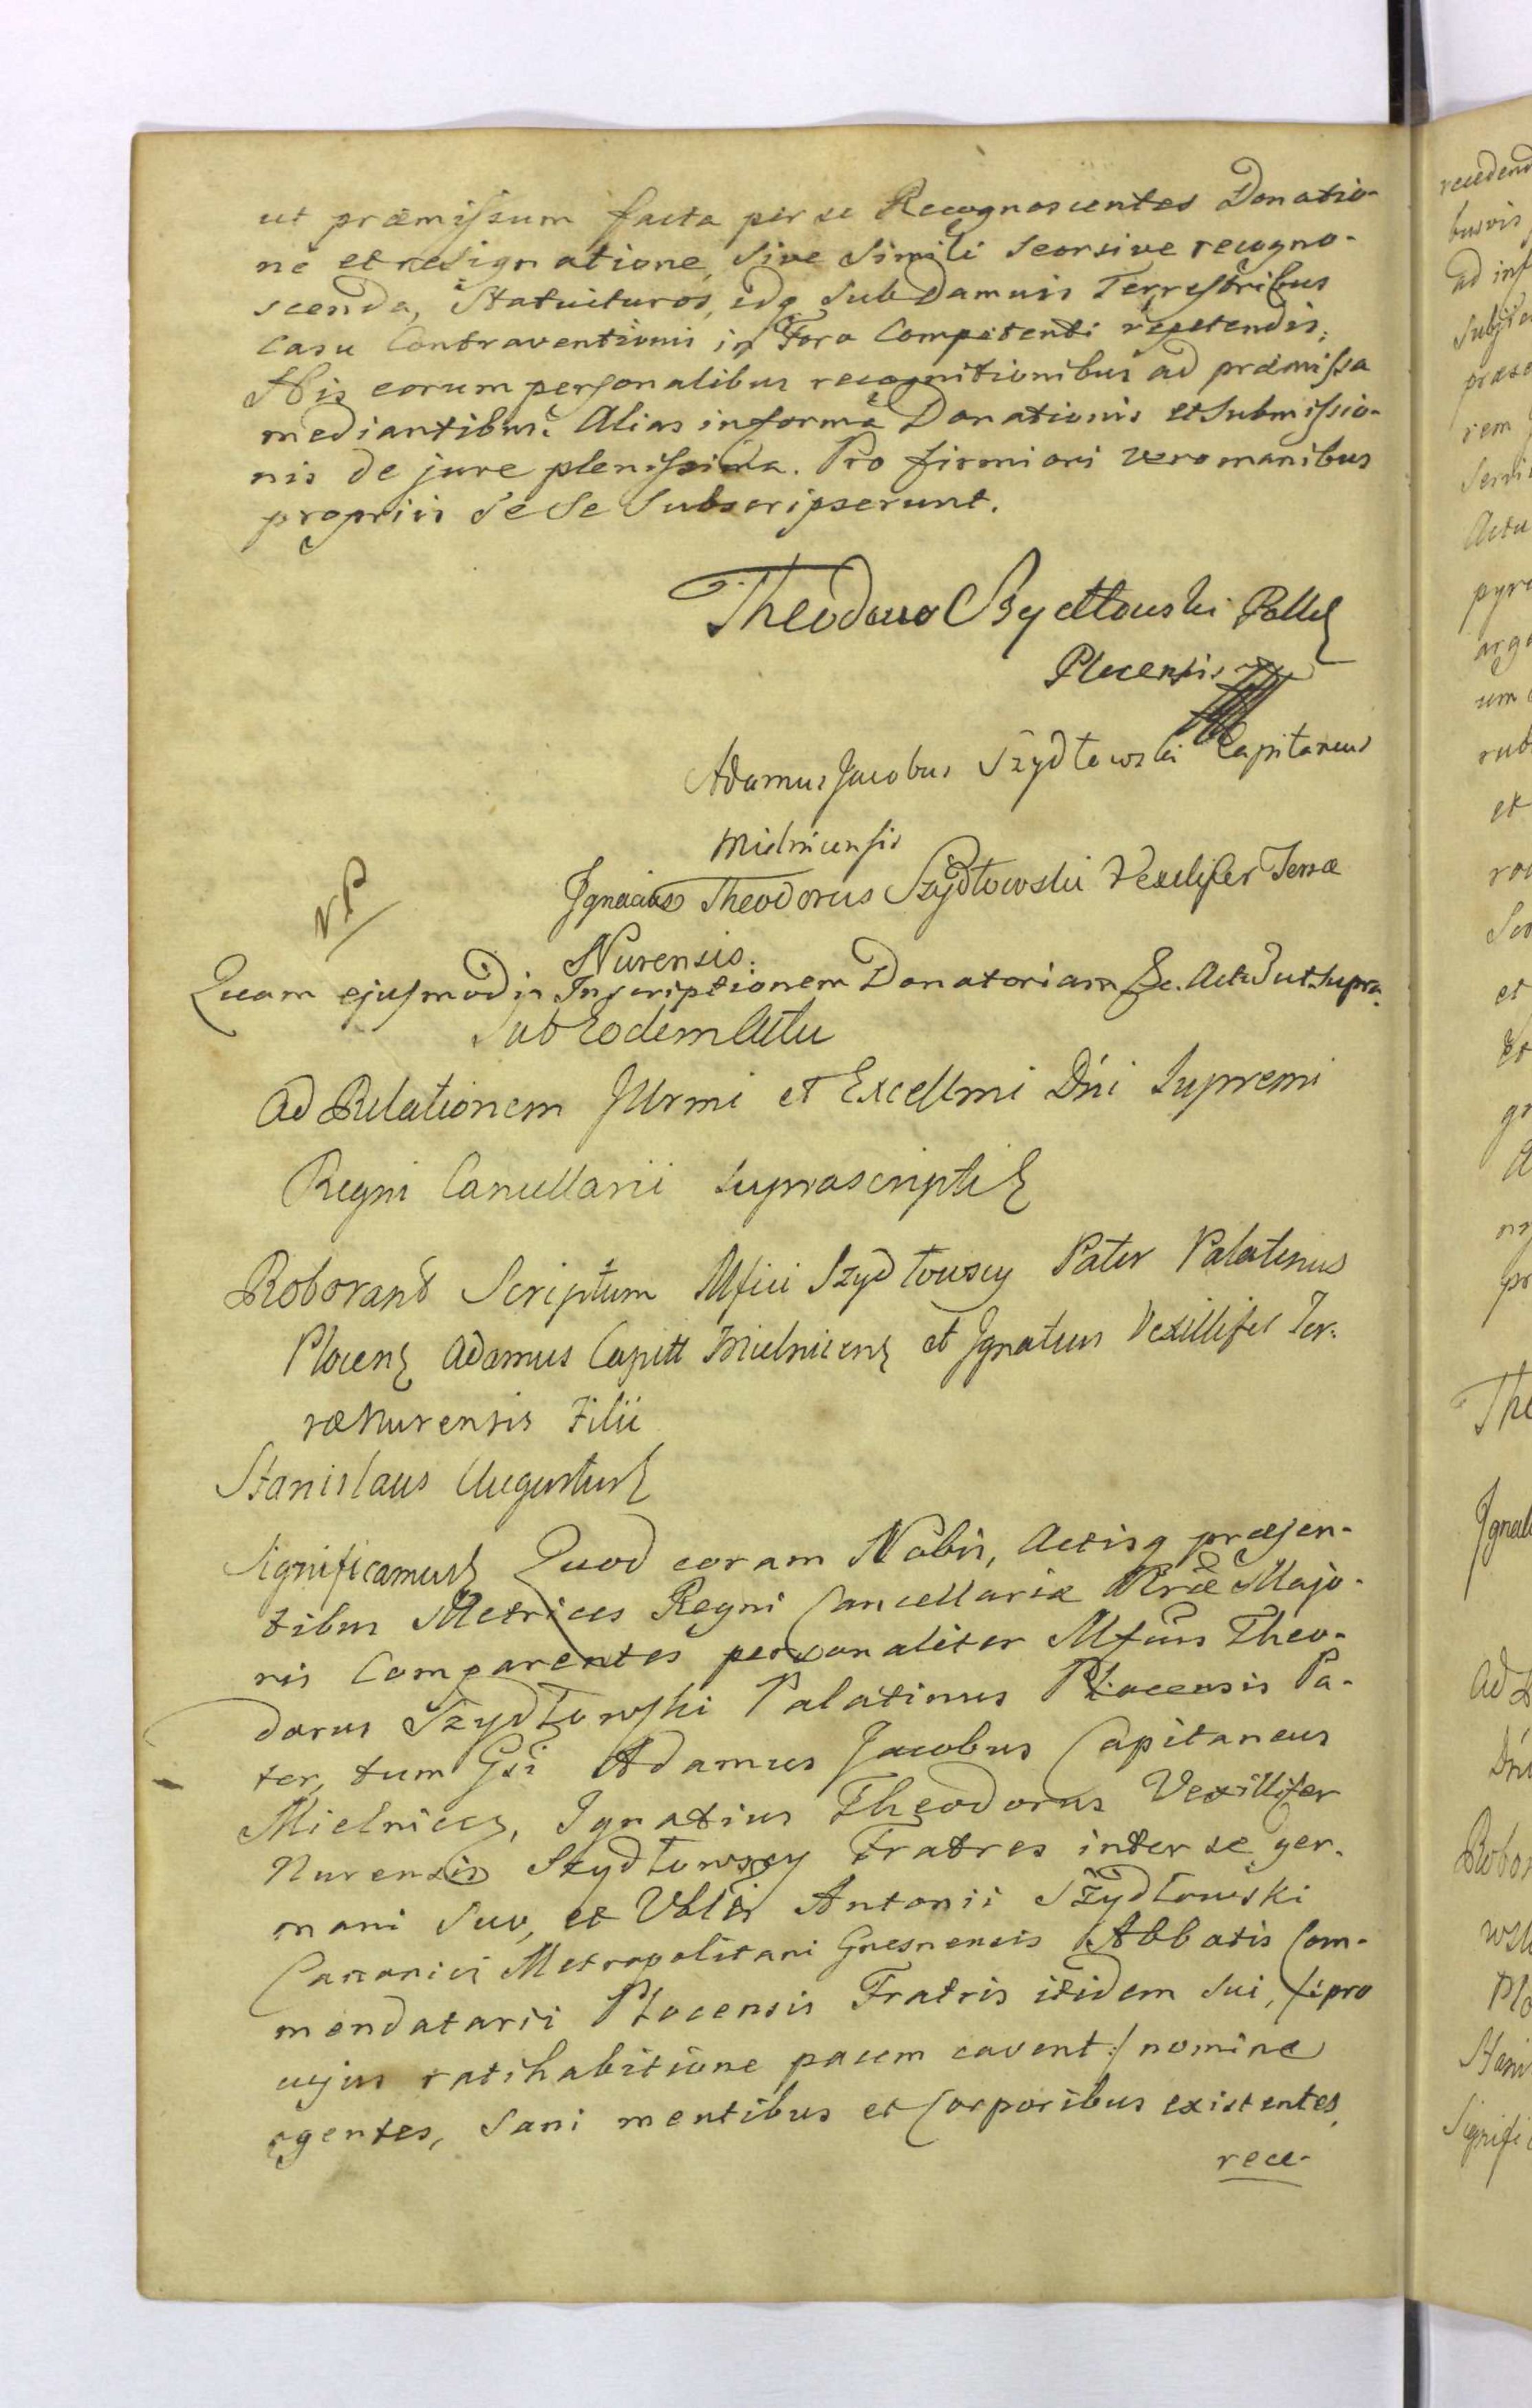 ut præmissum facta per se Recognoscentes Donatio-
ne et resignatione, sive simili seorsive recogno-
scenda, Statuituros, idq sub Damnis Terrestribus
Casu Contraventionis in Foro Competenti repetendis:
His eorum personalibus recognitionibus ad præmissa
mediantibus. Alias in forma Donationis et Submissio-
nis de jure plenissima. Pro firmiori vero manibus
propriis Se Se Subscripserunt.
Theodorus Szydłowski
Plocensis
Adamus Jacobus Szydłowski Capitaneus
Mielnicensis
Ignacius Theodorus Szydłowski Vexilifer Terræ
Nurensis.
NP
Quam ejusmodi Inscriptionem Donatoriam &c. Actũ ut Supra.
Sub Eodem Actu
Ad Relationem Illrmi et Excellmi Dni Supremi
Regni Cancellarii Suprascripti
Roborant Scriptum Mfici Szydłowscy Pater Palatinus
Plocen Adamus Capitt Mielnicen et Ignatius Vexillifer Ter-
ræ Nurensis Filii
Stanislaus Augustus
Significamus Quod coram Nobis, Actisq præsen-
tibus Metrices Regni Cancellariæ Nræ Majo-
ris Comparentes personaliter Mfcus Theo-
dorus Szydłowski Palatinus Plocensis Pa-
ter, tum Gsi Adamus Jacobus Capitaneus
Mielnicen, Ignatius Theodorus Vexillifer
Nurensis Szydłowscy Fratres inter se ger-
mani Suo, et Antonii Szydłowski
Canonici Metropolitani Gnesnensis Abbatis Com-
mendatarii Plocensis Fratris itidem Sui, /:pro
cujus ratihabitione pacem cavent:/ nomine
agentes, Sani mentibus et Corporibus existentes,
rece-